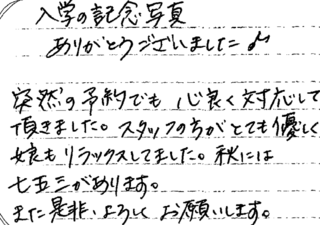 入学の記念写真
ありがとうございました♪
突然の予約でも 心良く対応して
頂きました。スタッフの方がとても優しく
娘もリラックスしてました。秋には
七五三があります。
また是非、よろしく お願いします。